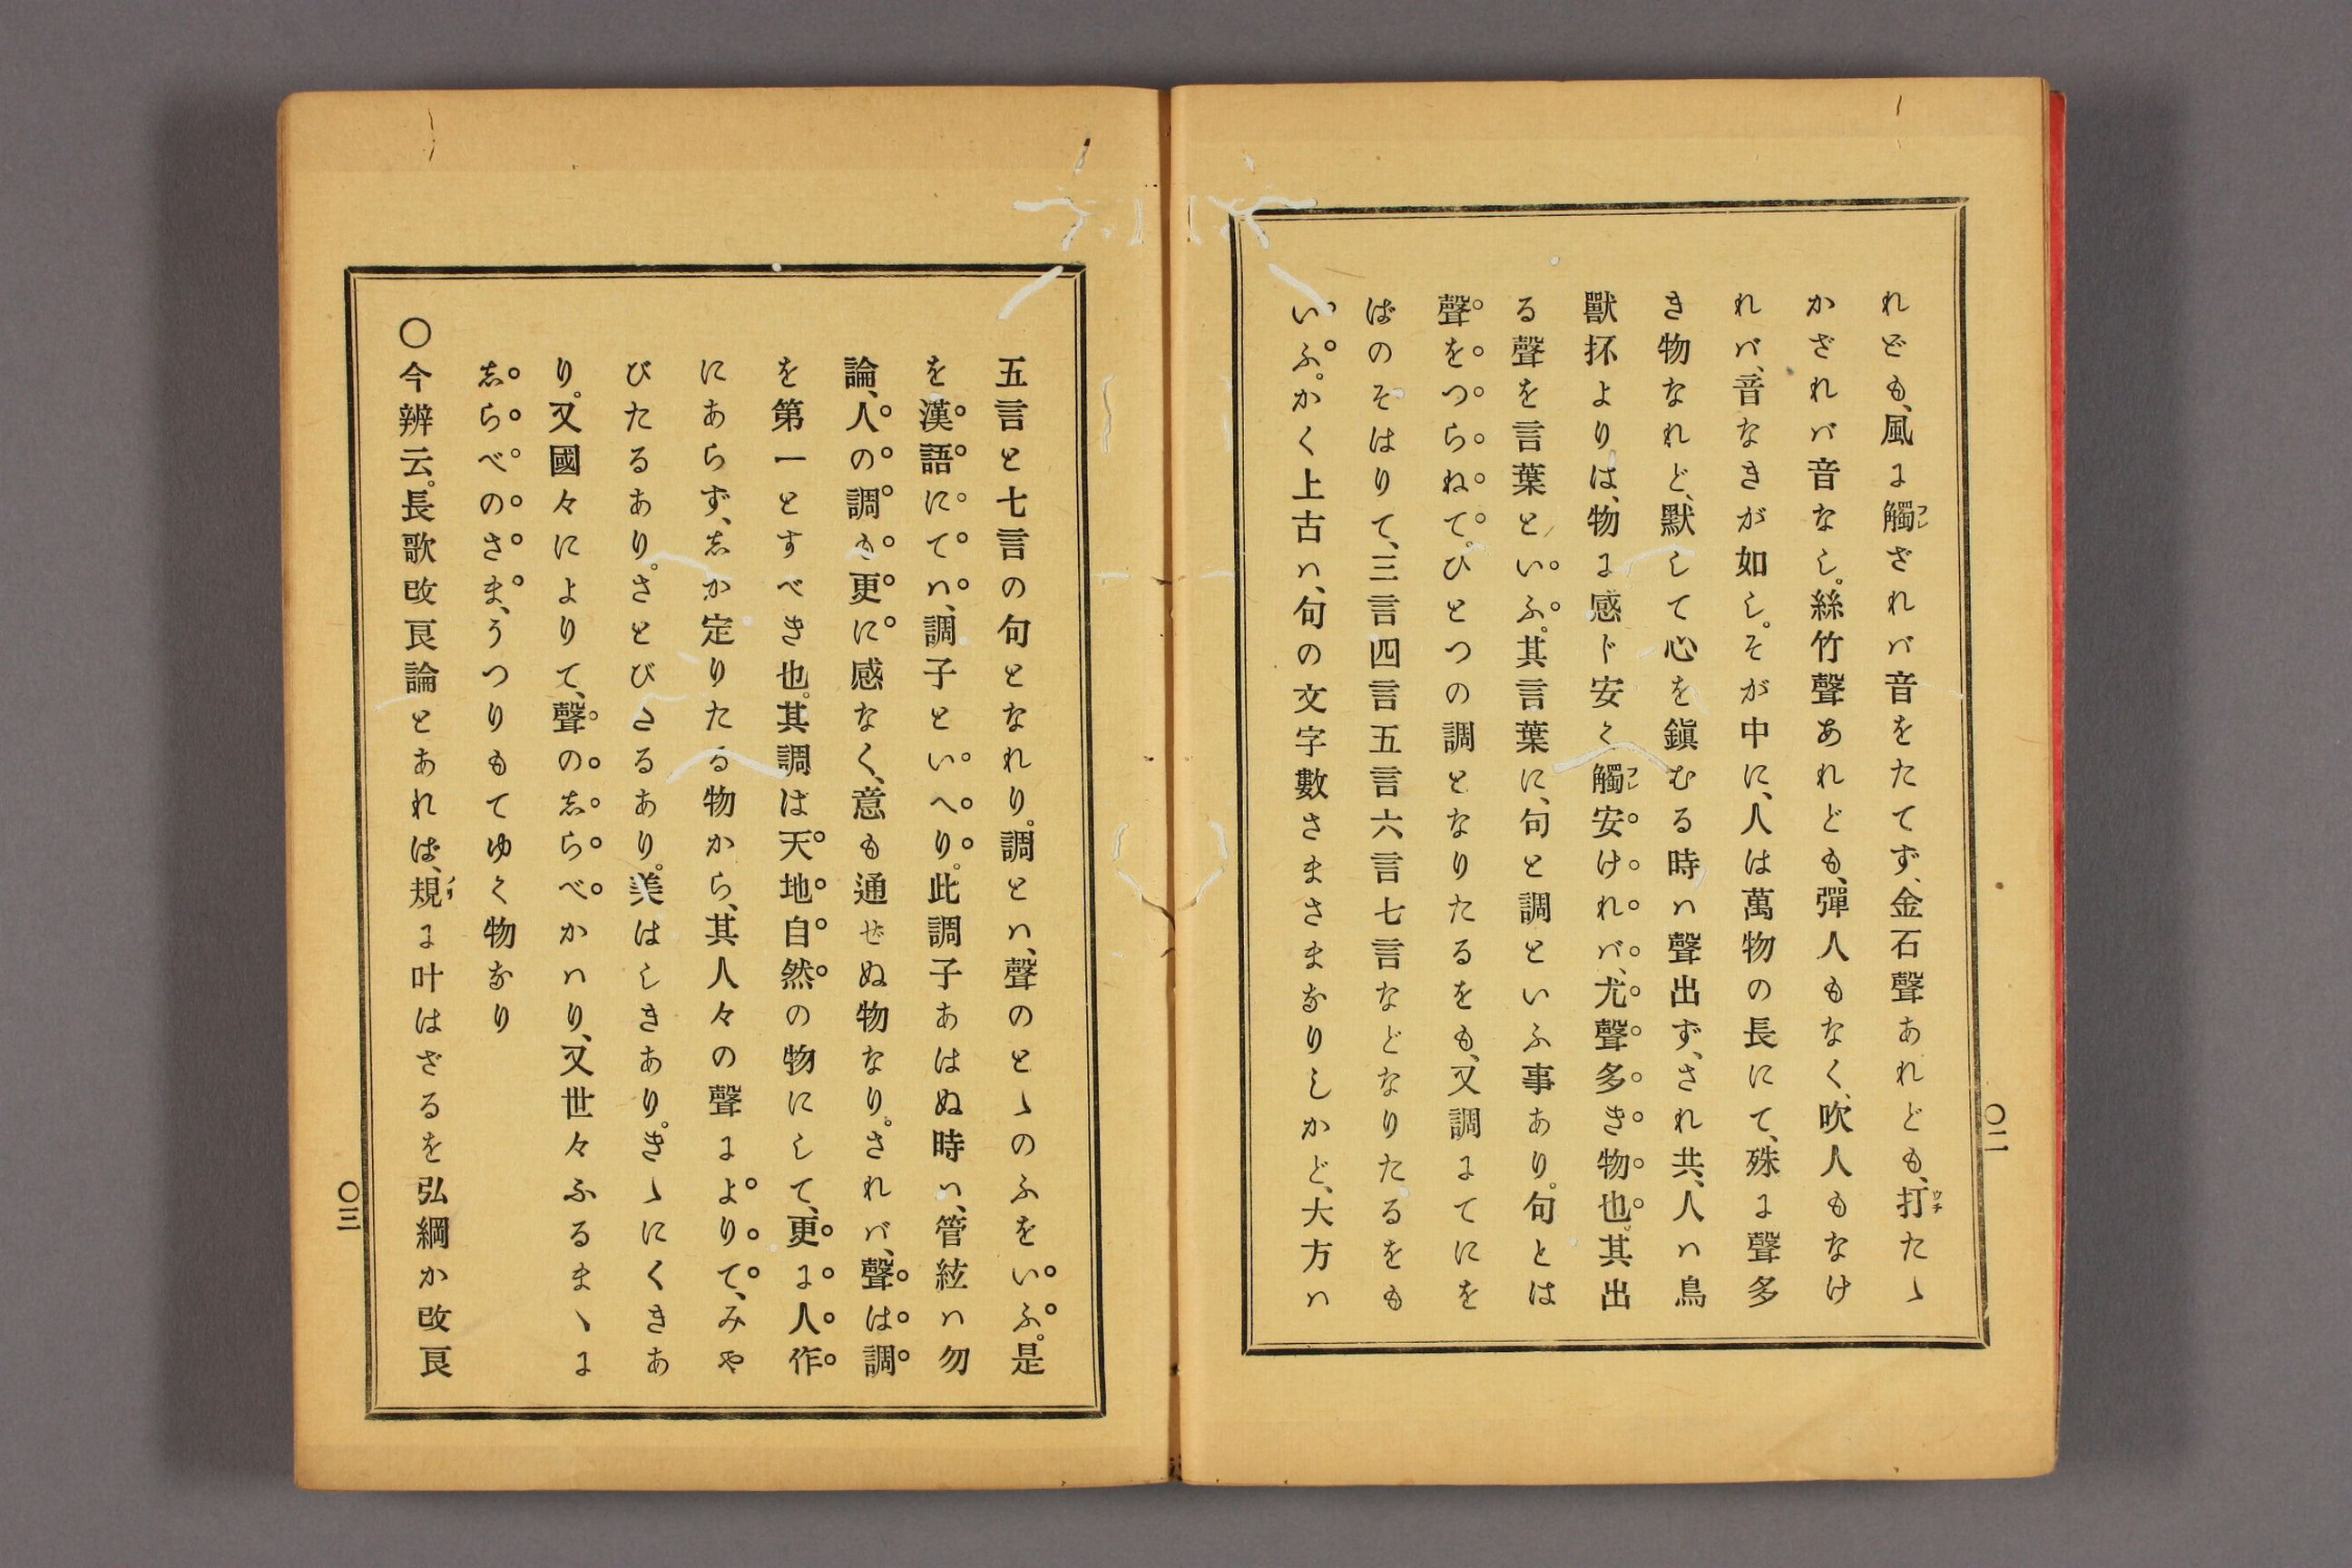 れども、風に觸ざれバ音をたてず、金石聲あれども、打たゝ
かざれバ音なし。絲竹聲あれども、彈人もなく、吹人もなけ
れバ、音なきが如し。そが中に、人は萬物の長にて、殊に聲多
き物なれど、默して心を鎭むる時ハ聲出ず、され共、人ハ鳥
獸抔よりは、物に感ド安く觸安ければバ、尤聲多き物也。其出
る聲を言葉といふ。其言葉に、句と調といふ事あり。句とは
聲をつらねて。ひとつの調となりたるをも、又調にてにを
ばのそはりて、三言四言五言六言七言などなりたるをも
いふ。かく上古ハ、句の文字數さまさまなりしかど、大方ハ
〇二
五言と七言の句となれり。調とハ、聲のとゝのふをいふ。是
を漢語にてハ、調子といへり。此調子あはぬ時ハ、管絃ハ勿
論、人の調も更に感なく、意も通ぜぬ物なり。されバ、聲は調
を第一とすべき也。其調は天地自然の物にして、更に人作
にあらず、志か定りたる物から、其人々の聲によりて、みや
びたるあり。さとびさるあり。美はしきあり。きゝにくきあ
り。又國々によりて、聲の志らべかハり、又世々ふるまゝに
志らべのさま、うつりもてゆく物なり
〇今辨云。長歌改良論とあれば、規に叶はざるを弘綱か改良
〇三